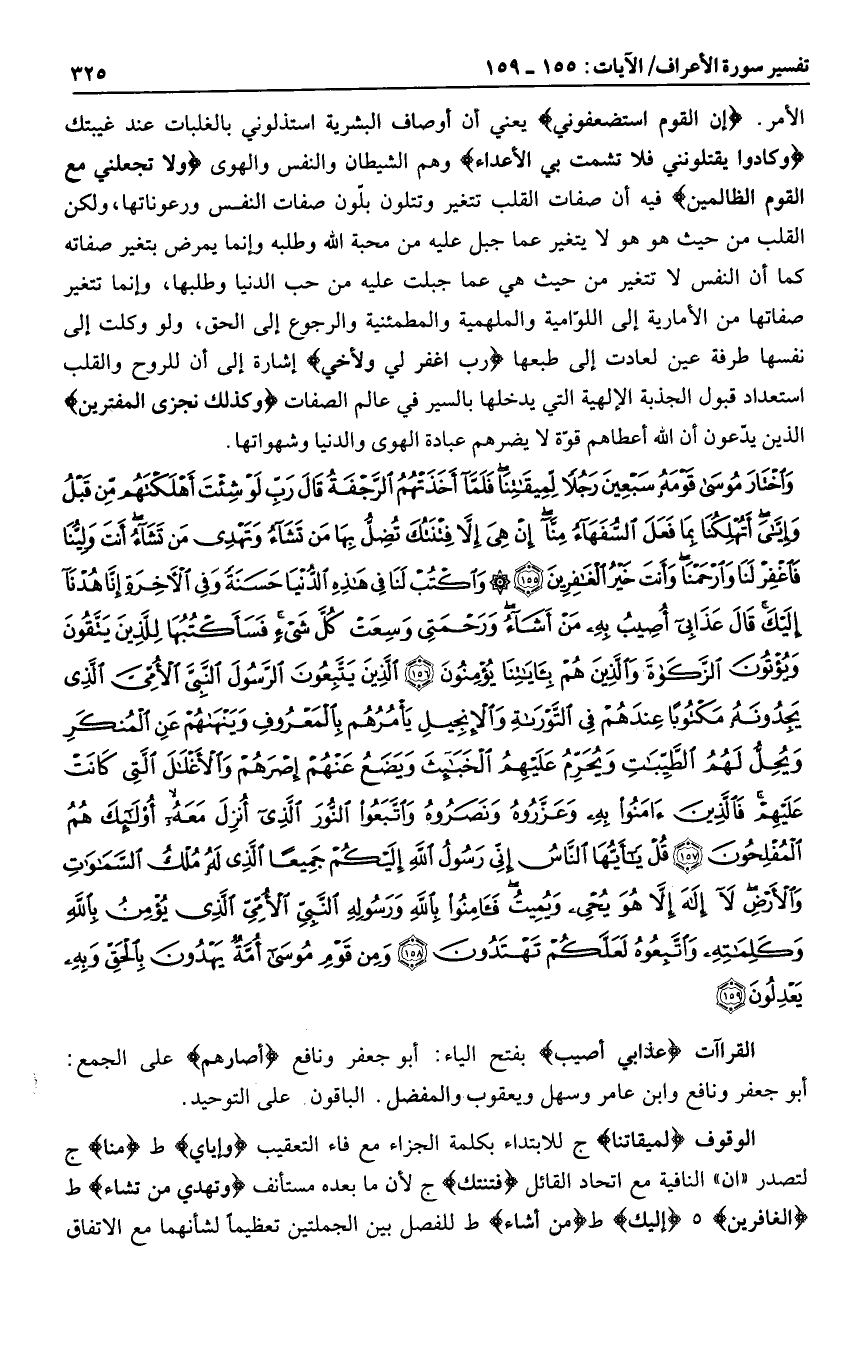 تفسير سورة الأعراف/ الآيات: ١٥٥ ـ ١٥٩ ٣٢٥
الأمر. ﴿إن القوم استضعفوني﴾ يعني أن أوصاف البشرية استذلوني بالغلبات عند غيبتك
﴿وكادوا يقتلونني فلا تشمت بي الأعداء﴾ وهم الشيطان والنفس والهوى ﴿ولا تجعلني مع
القوم الظالمين﴾ فيه أن صفات القلب تتغير وتتلون بلّون صفات النفس ورعوناتها، ولكن
القلب من حيث هو هو لا يتغير عما جبل عليه من محبة الله وطلبه وإنما يمرض بتغير صفاته
كما أن النفس لا تتغير من حيث هي عما جبلت عليه من حب الدنيا وطلبها، وإنما تتغير
صفاتها من الأمارية إلى اللوّامية والملهمية والمطمئنية والرجوع إلى الحق، ولو وكلت إلى
نفسها طرفة عين لعادت إلى طبعها ﴿رب اغفر لي ولأخي﴾ إشارة إلى أن للروح والقلب
استعداد قبول الجذبة الإلهية التي يدخلها بالسير في عالم الصفات ﴿وكذلك نجزى المفترين﴾
الذين يدّعون أن الله أعطاهم قوّة لا يضرهم عبادة الهوى والدنيا وشهواتها.
وَٱخْتَارَ مُوسَىٰ قَوْمَهُۥ سَبْعِينَ رَجُلًا لِّمِيقَٰتِنَاۖ فَلَمَّآ أَخَذَتْهُمُ ٱلرَّجْفَةُ قَالَ رَبِّ لَوْ شِئْتَ أَهْلَكْتَهُم مِّن قَبْلُ
وَإِيَّٰىَۖ أَتُهْلِكُنَا بِمَا فَعَلَ ٱلسُّفَهَآءُ مِنَّآۖ إِنْ هِىَ إِلَّا فِتْنَتُكَ تُضِلُّ بِهَا مَن تَشَآءُ وَتَهْدِى مَن تَشَآءُۖ أَنتَ وَلِيُّنَا
فَٱغْفِرْ لَنَا وَٱرْحَمْنَاۖ وَأَنتَ خَيْرُ ٱلْغَٰفِرِينَ ﴿١٥٥﴾ ۞ وَٱكْتُبْ لَنَا فِى هَٰذِهِ ٱلدُّنْيَا حَسَنَةً وَفِى ٱلْءَاخِرَةِ إِنَّا هُدْنَآ
إِلَيْكَۚ قَالَ عَذَابِىٓ أُصِيبُ بِهِۦ مَنْ أَشَآءُۖ وَرَحْمَتِى وَسِعَتْ كُلَّ شَىْءٍۚ فَسَأَكْتُبُهَا لِلَّذِينَ يَتَّقُونَ
وَيُؤْتُونَ ٱلزَّكَوٰةَ وَٱلَّذِينَ هُم بِـَٔايَٰتِنَا يُؤْمِنُونَ ﴿١٥٦﴾ ٱلَّذِينَ يَتَّبِعُونَ ٱلرَّسُولَ ٱلنَّبِىَّ ٱلْأُمِّىَّ ٱلَّذِى
يَجِدُونَهُۥ مَكْتُوبًا عِندَهُمْ فِى ٱلتَّوْرَىٰةِ وَٱلْإِنجِيلِ يَأْمُرُهُم بِٱلْمَعْرُوفِ وَيَنْهَىٰهُمْ عَنِ ٱلْمُنكَرِ
وَيُحِلُّ لَهُمُ ٱلطَّيِّبَٰتِ وَيُحَرِّمُ عَلَيْهِمُ ٱلْخَبَٰٓئِثَ وَيَضَعُ عَنْهُمْ إِصْرَهُمْ وَٱلْأَغْلَٰلَ ٱلَّتِى كَانَتْ
عَلَيْهِمْۚ فَٱلَّذِينَ ءَامَنُوا۟ بِهِۦ وَعَزَّرُوهُ وَنَصَرُوهُ وَٱتَّبَعُوا۟ ٱلنُّورَ ٱلَّذِىٓ أُنزِلَ مَعَهُۥٓۙ أُو۟لَٰٓئِكَ هُمُ
ٱلْمُفْلِحُونَ ﴿١٥٧﴾ قُلْ يَٰٓأَيُّهَا ٱلنَّاسُ إِنِّى رَسُولُ ٱللَّهِ إِلَيْكُمْ جَمِيعًا ٱلَّذِى لَهُۥ مُلْكُ ٱلسَّمَٰوَٰتِ
وَٱلْأَرْضِۖ لَآ إِلَٰهَ إِلَّا هُوَ يُحْىِۦ وَيُمِيتُۖ فَـَٔامِنُوا۟ بِٱللَّهِ وَرَسُولِهِ ٱلنَّبِىِّ ٱلْأُمِّىِّ ٱلَّذِى يُؤْمِنُ بِٱللَّهِ
وَكَلِمَٰتِهِۦ وَٱتَّبِعُوهُ لَعَلَّكُمْ تَهْتَدُونَ ﴿١٥٨﴾ وَمِن قَوْمِ مُوسَىٰٓ أُمَّةٌ يَهْدُونَ بِٱلْحَقِّ وَبِهِۦ
يَعْدِلُونَ ﴿١٥٩﴾
القراآت ﴿عذابي أصيب﴾ بفتح الياء: أبو جعفر ونافع ﴿أصارهم﴾ على الجمع:
أبو جعفر ونافع وابن عامر وسهل ويعقوب والمفضل. الباقون على التوحيد.
الوقوف ﴿لميقاتنا﴾ ج للابتداء بكلمة الجزاء مع فاء التعقيب ﴿وإياي﴾ ط ﴿منا﴾ ج
لتصدر «ان» النافية مع اتحاد القائل ﴿فتنتك﴾ ج لأن ما بعده مستأنف ﴿وتهدي من تشاء﴾ ط
﴿الغافرين﴾ ٥ ﴿إليك﴾ ط﴿من أشاء﴾ ط للفصل بين الجملتين تعظيماً لشأنهما مع الاتفاق